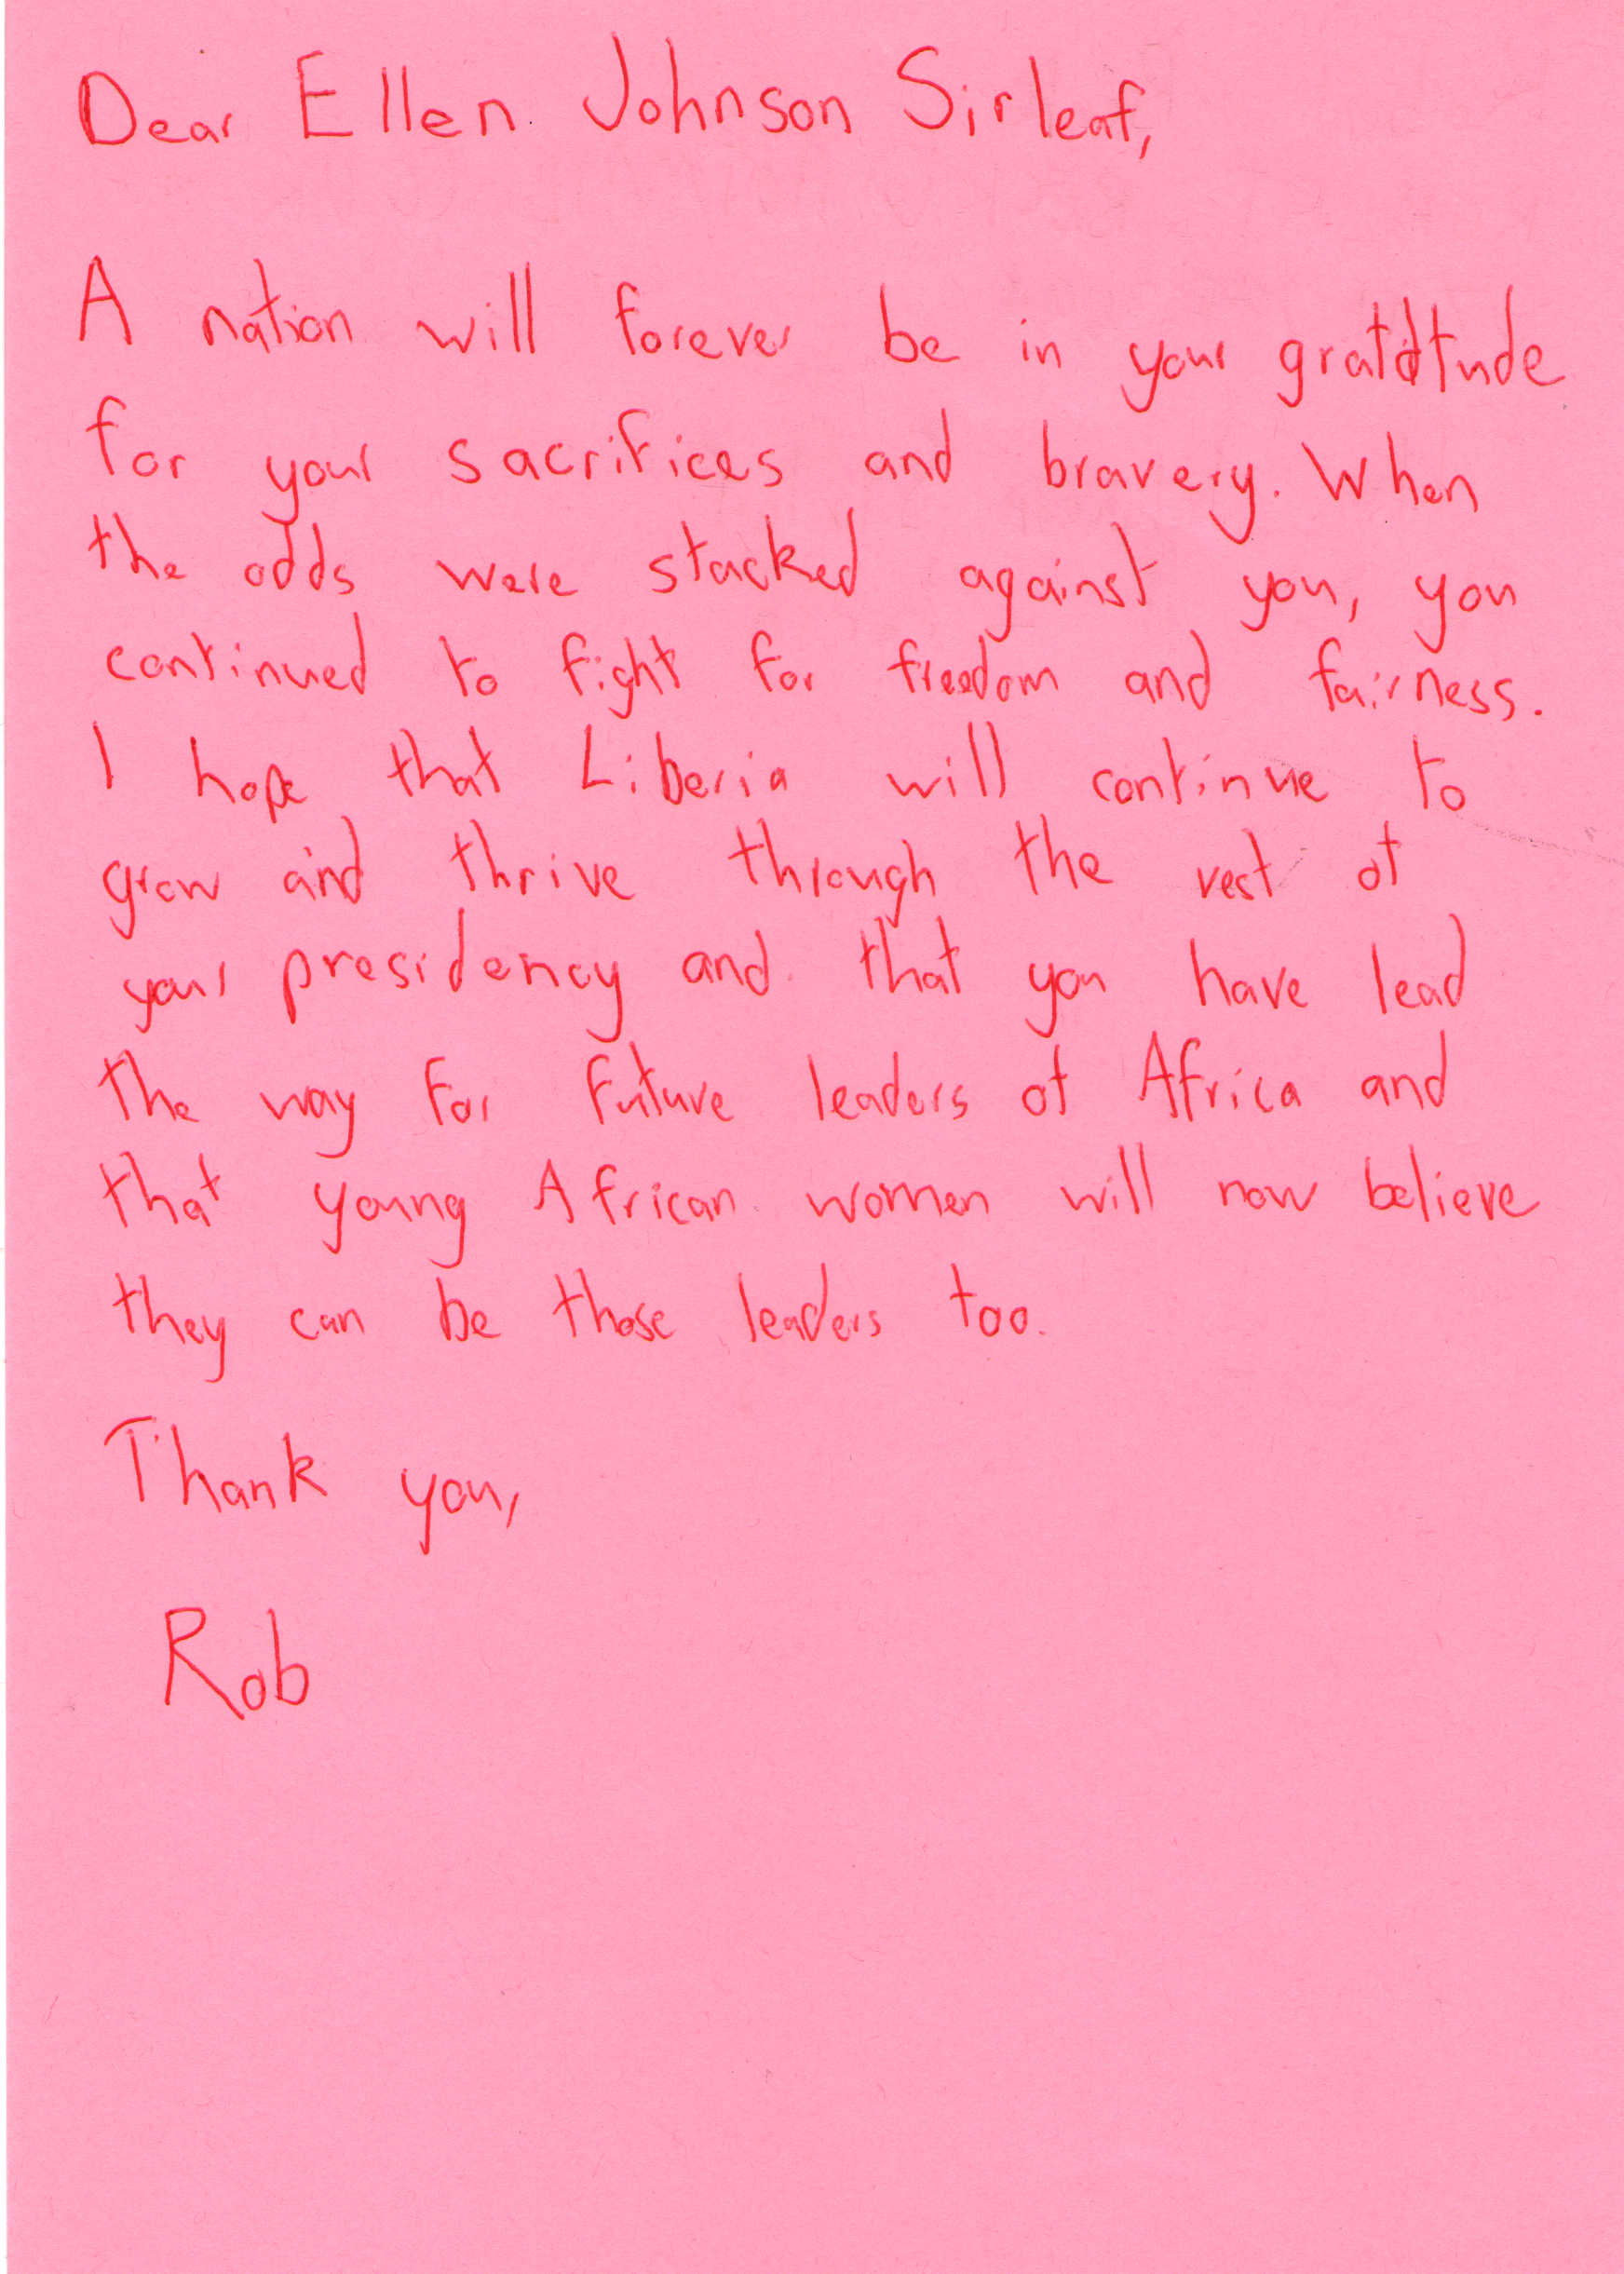 Dear Ellen Johnson Sirleaf,
A nation will forever be in your gratitude
for your sacrifices and bravery. When
the odds were stacked against you, you
continued to fight for freedom and fairness.
I hope that Liberia will continue to
grow and thrive through the rest of
your presidency and that you have lead
the way for future leaders of Africa and
that young African women will now believe
they can be those leaders too.
Thank you,
Rob